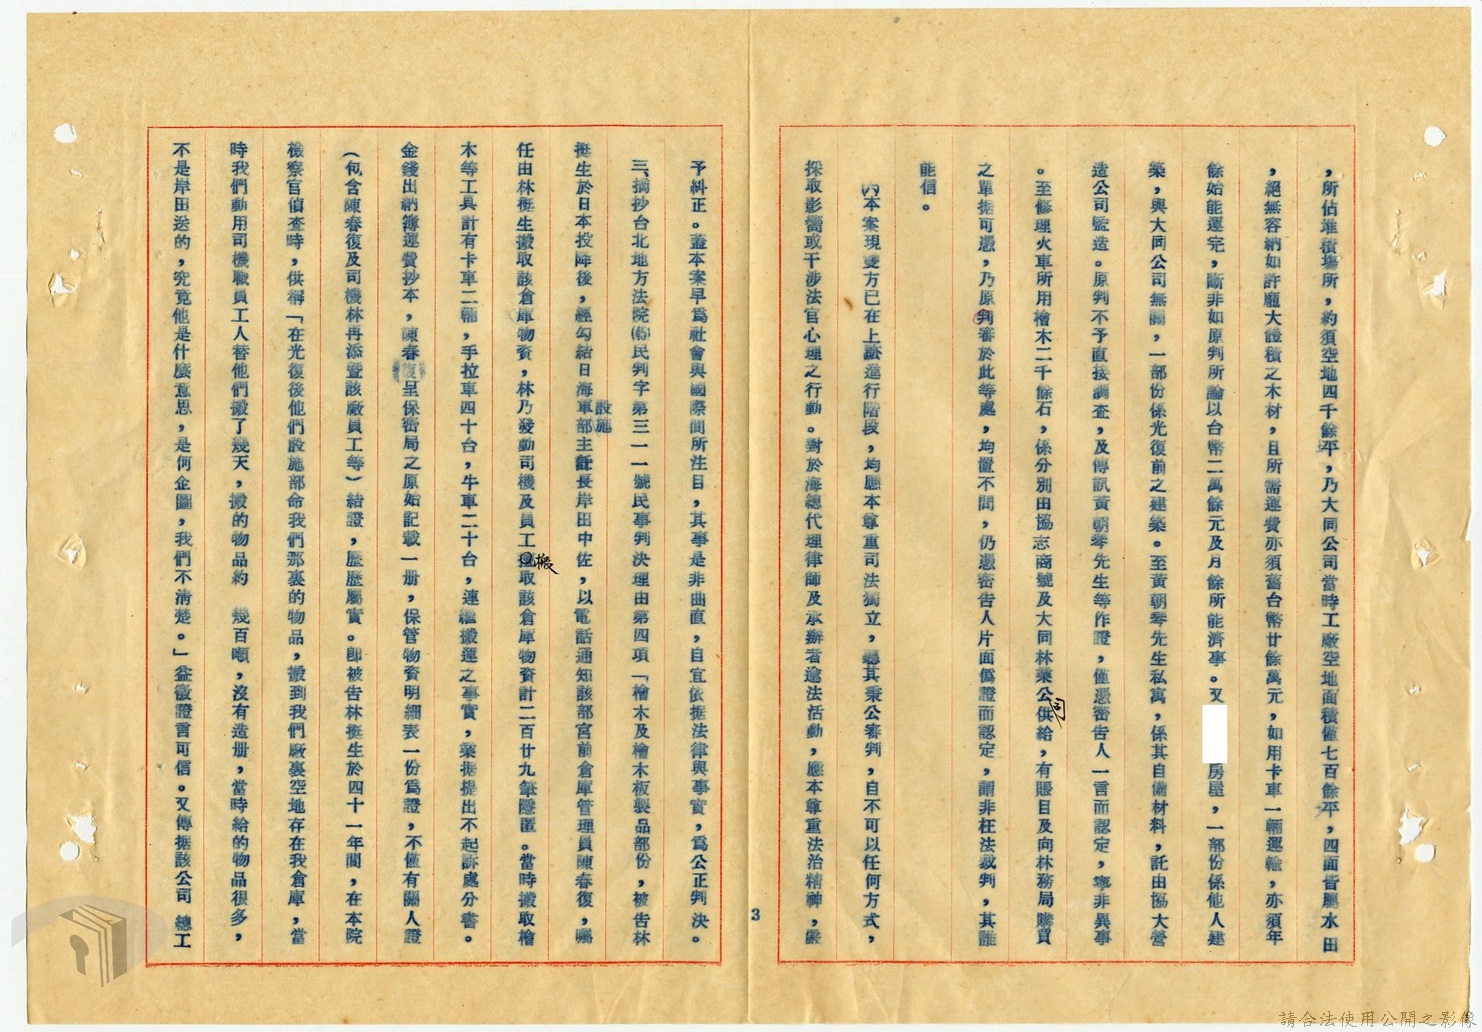 ，所佔堆積場所，約須空地四千餘坪，乃大同公司當時工廠空地面積僅七百餘坪，四面皆屬水田
，絕無容納如許龐大證積之木材，且所需運費亦須舊台幣廿餘萬元，如用卡車一輛運輸，亦須年
餘始能運完，斷非如原判所論以台幣二萬餘元及月餘所能濟事。又房屋，一部份係他人建
築，與大同公司無關，一部份係光復前之建築。至黃朝琴先生私寓，係其自備材料，託由協大營
造公司監造。原判不予直接調查，及傳訊黃朝琴先生等作證，僅憑密告人一言而認定，寧非異事
。至修理火車所用檜木二千餘石，係分別由協志商號及大同林業公司供給，有賬目及向林務局購買
之單據可憑，乃原判審於此等處，均置不問，仍憑密告人片面僞證而認定，謂非枉法裁判，其誰
能信。
㈥本案現雙方已在上訴進行階段，均應本尊重司法獨立，聽其秉公審判，自不可以任何方式，
採取影響或干涉法官心理之行動。對於海總代理律師及承辦者違法活動，應本尊重法治精神，嚴
3
予糾正。蓋本案早爲社會與國際間所注目，其事是非曲直，自宜依據法律與事實，爲公正判決。
三、摘抄台北地方法院㊸民判字第三一一號民事判決理由第四項「檜木及檜木板製品部份，被告林
挺生於日本投降後，經勾結日海軍部設施主計長岸田中佐，以電話通知該部宮前倉庫管理員陳春復，囑
任由林挺生搬取該倉庫物資，林乃發動司機及員工搬取該倉庫物資計二百廿九筆隱匿。當時搬取檜
木等工具計有卡車二輛，手拉車四十台，牛車二十台，連繼搬運之事實，業據提出不起訴處分書。
金錢出納簿運費抄本，陳春復呈保密局之原始記載一册，保管物資明細表一份爲證，不僅有關人證
（包含陳春復及司機林再添暨該廠員工等）結證，歷歷屬實。卽被告林挺生於四十一年間，在本院
檢察官偵查時，供稱「在光復後他們設施部命我們那裏的物品，搬到我們廠裏空地存在我倉庫，當
時我們動用司機職員工人替他們搬了幾天，搬的物品約　幾百噸，沒有造册，當時給的物品很多，
不是岸田送的，究竟他是什麼意思，是何企圖，我們不清楚。」益徵證言可信。又傳据該公司 總工
請合法使用公開之影像